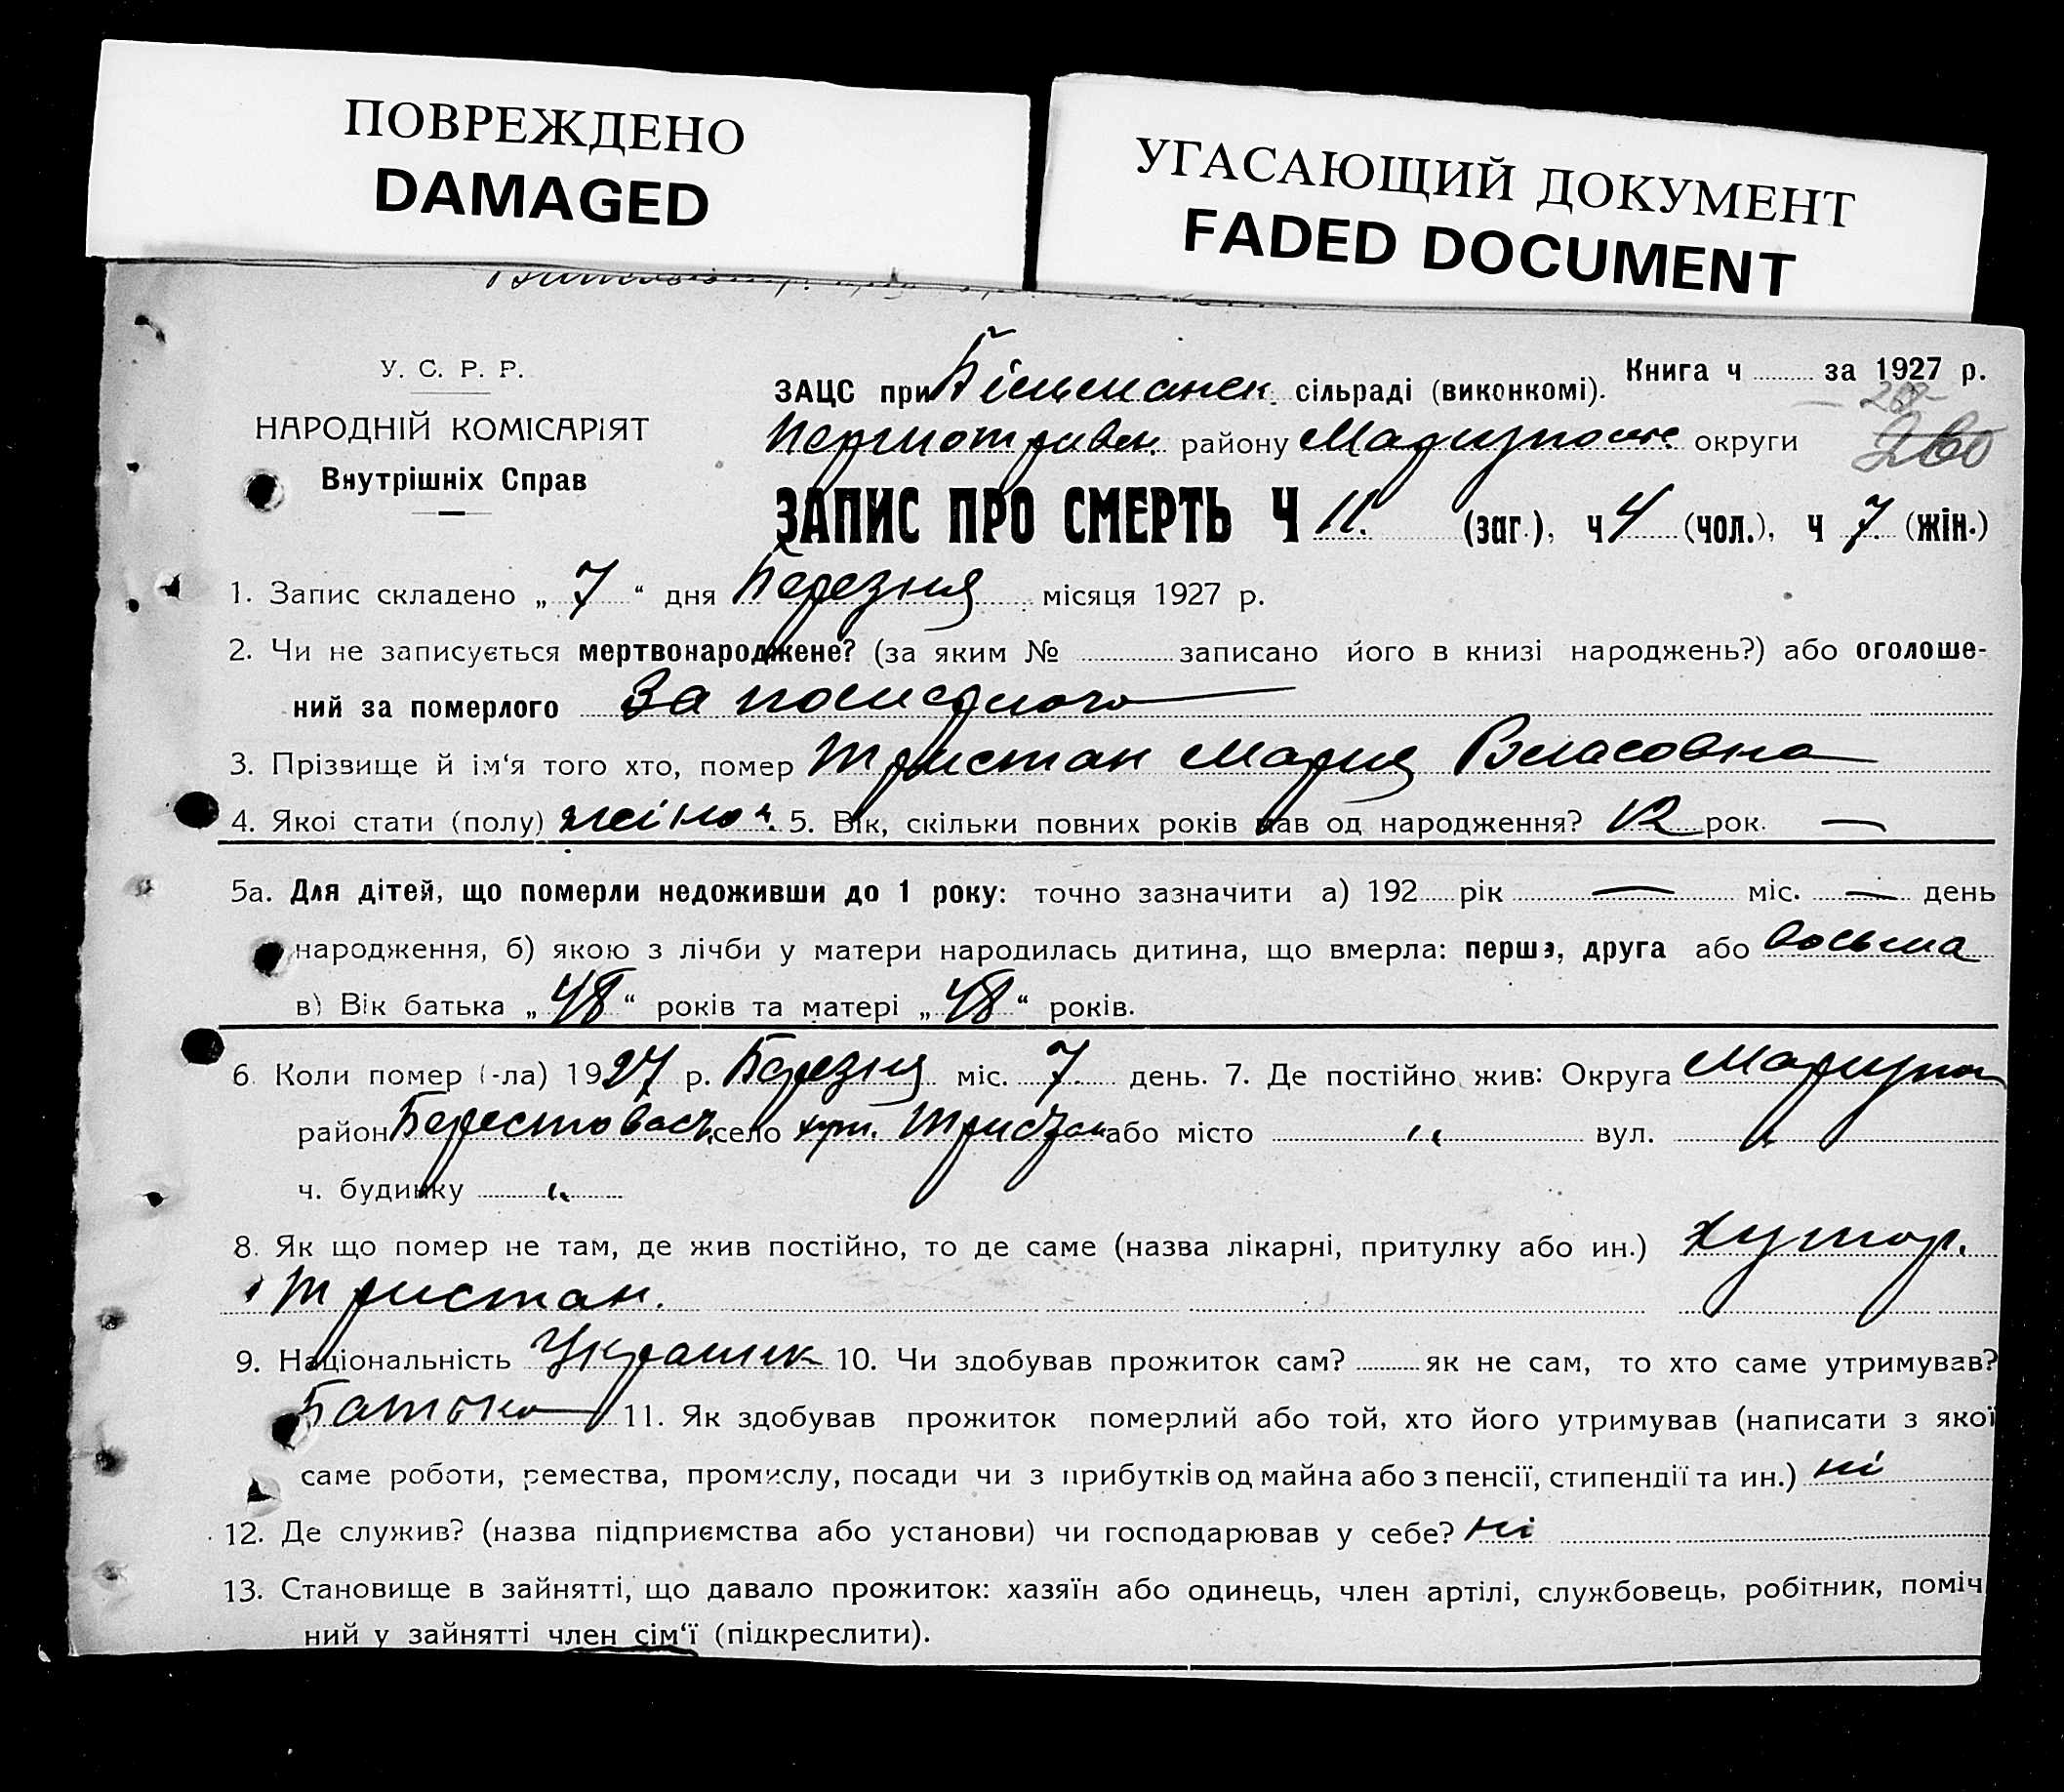 ПОВРЕЖДЕНО
DAMAGED
УГАСАЮЩИЙ ДОКУМЕНТ
FADED DOCUMENT
У. С. Р. Р.
НАРОДНІЙ КОМІСАРІЯТ
Внутрішніх Справ
Книга ч за 1927 р.
ЗАЦС при сільраді (виконкомі).
району округи 260
ЗАПИС ПРО СМЕРТЬ Ч 11. (заг.), ч 4 (чол.), ч 7 (жін.)
1. Запис складено „ 7 “ дня Березня місяця 1927 р.
2. Чи не записується мертвонароджене? (за яким № записано його в книзі народжень?) або оголоше-
ний за померлого За померлого
3. Прізвище й ім‘я того хто, помер Тристан Мария Власовна
4. Якоі стати (полу) жіноч. 5. Вік, скільки повних років мав од народження? 12 рок. —
5а. Для дітей, що померли недоживши до 1 року: точно зазначити а) 192 рік — міс. — день
народження, б) якою з лічби у матери народилась дитина, що вмерла: перша, друга або восьма
в) Вік батька „ 48 “ років та матері „ 48 “ років.
6. Коли помер (-ла) 1927 р. Березня міс. 7. день. 7. Де постійно жив: Округа Мариупол
район село хут. або місто " вул. "
ч. будинку "
8. Як що помер не там, де жив постійно, то де саме (назва лікарні, притулку або ин.) хутор.
Тристан.
9. Національність 10. Чи здобував прожиток сам? як не сам, то хто саме утримував?
Батько 11. Як здобував прожиток померлий або той, хто його утримував (написати з якої
саме роботи, ремества, промислу, посади чи з прибутків од майна або з пенсії, стипендії та ин.) ні
12. Де служив? (назва підприємства або установи) чи господарював у себе? ні
13. Становище в зайнятті, що давало прожиток: хазяїн або одинець, член артілі, службовець, робітник, поміч
ний у зайнятті член сім‘ї (підкреслити).